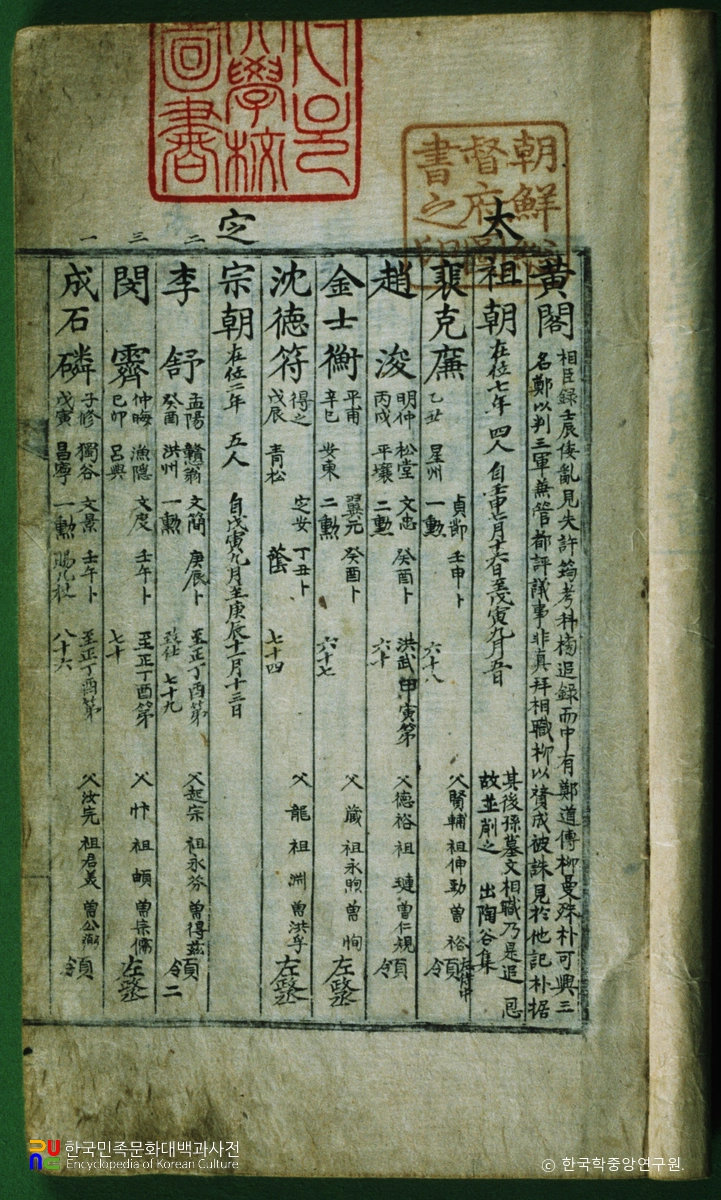 黃閣
相臣録壬辰倭亂見失許筠考科榜追録而中有鄭道傳柳曼殊朴可興三
名鄭以判三軍兼管都評議事非真拜相職柳以贊成被誅見於他記朴据
其後孫墓文相職乃是追
故並削之 出陶谷集
太祖朝 在位七年 四人 自壬申七月十六日至戊寅九月五日
裵克廉 乙丑 星州 貞節 一勳 壬申卜 六十八 父賢輔 祖伸勁 曾裕 領
趙浚 明仲 丙戌 松堂 平壤 文忠 二勳 癸酉卜 六十 洪武甲寅第 父德裕 祖璉 曾仁規 領
金士衡 平甫 辛巳 安東 翼元 二勳 癸酉卜 六十七 父蕆 祖永煦 曾恂 左丞
沈德符 得之 戊辰 青松 定安 蔭 丁丑卜 七十四 父龍 祖淵 曾洪孚 左丞
定宗朝 在位二年 五人 自戊寅九月至庚辰十一月十三日
二 李舒 孟陽 癸酉 戇翁 洪州 文簡 一勳 庚辰卜 至正丁酉第 致仕 七十九 父起宗 祖永芬 曾得玆 領 二
三 閔霽 仲晦 己卯 漁隱 呂興 文度 壬午卜 至正丁酉第 七十 父忭 祖頔 曾宗儒 左丞
一 成石磷 子修 戊寅 獨谷 昌寧 文景 一勳 壬午卜 賜几杖 至正丁酉第 八十六 父汝完 祖君美 曾公弼 領
圖書
學校
朝鮮
督府圖
書之印
한국민족문화대백과사전
Encyclopedia of Korean Culture
© 한국학중앙연구원.